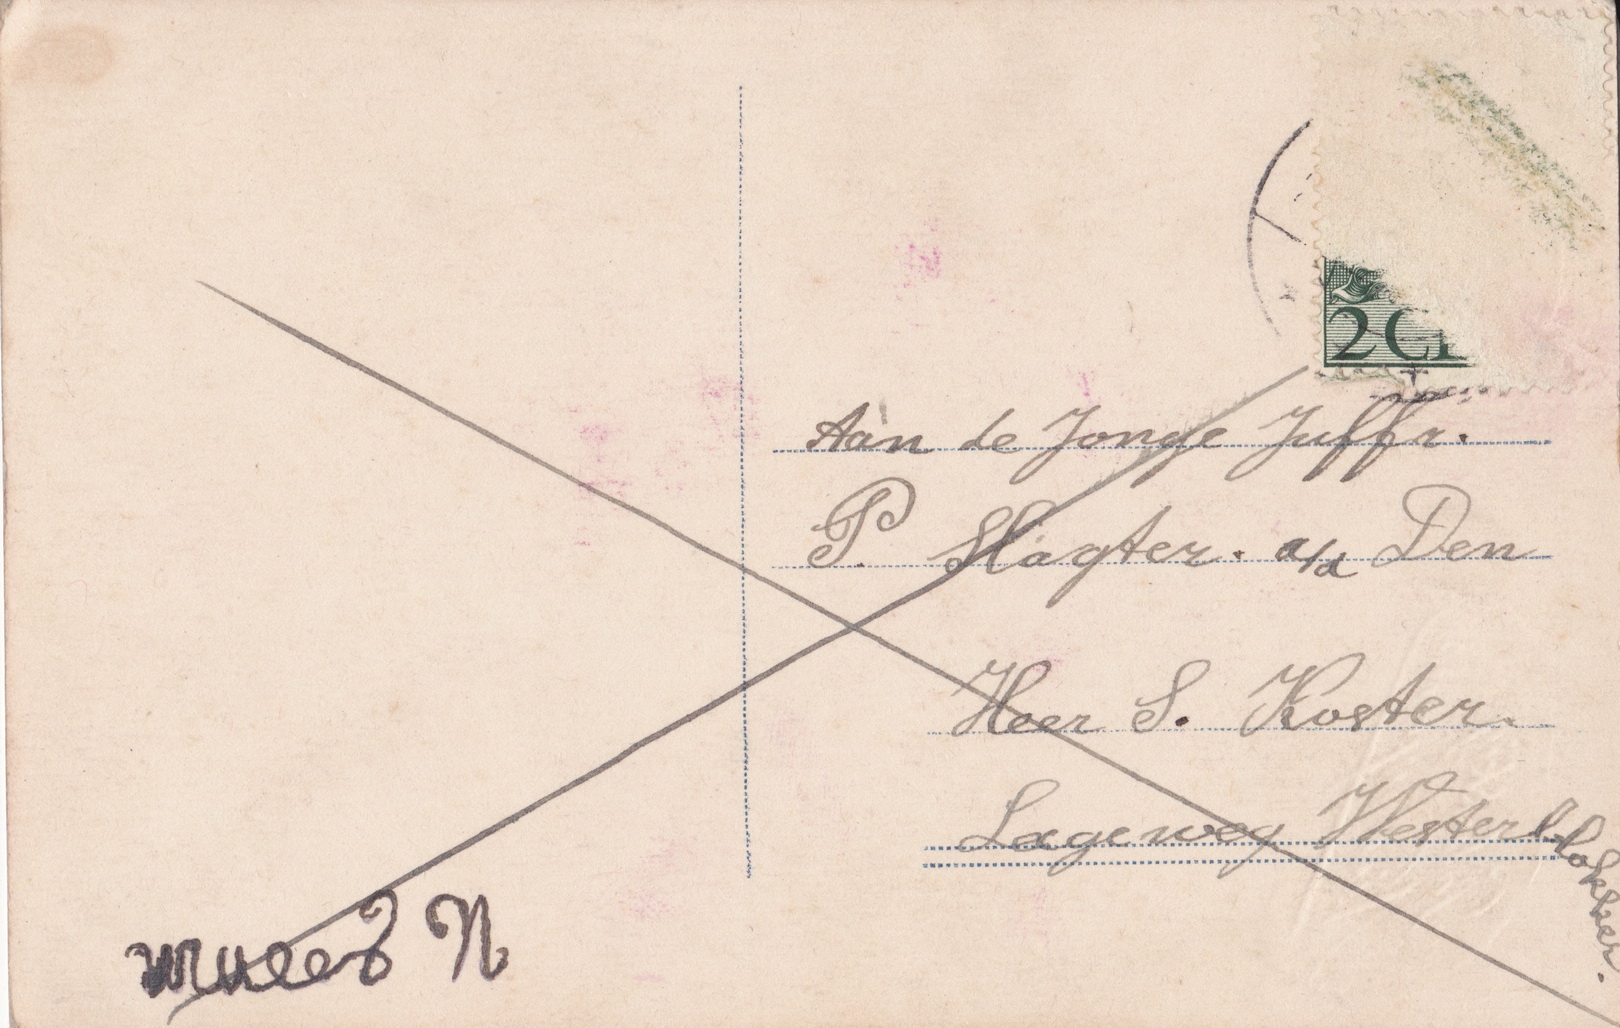 2 C
Aan de Jonge Juffr.
P. Slagter. a/d Den
Heer S. Koster.
Lageweg Westerblokker.
N